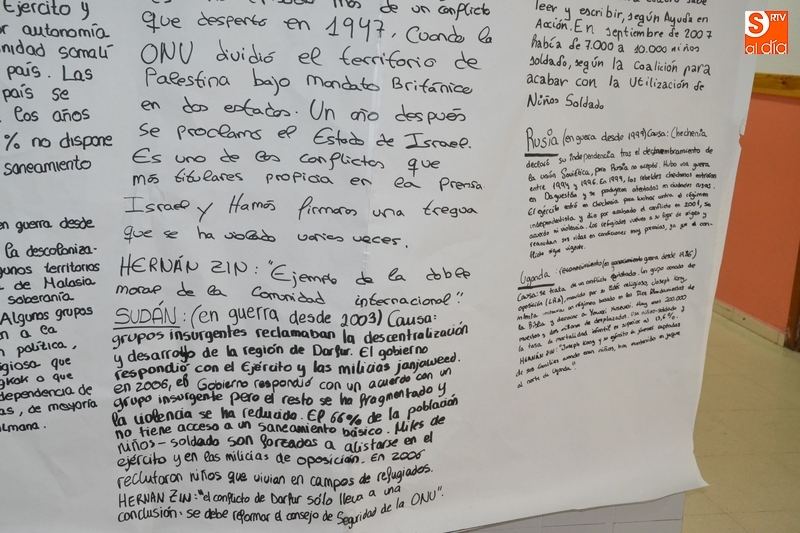 Ejército y
autonomía
nidad somalí
país. Las
país se
los años
% no dispone
saneamiento
en guerra desde
la descoloniza-
gunos territorios
de Malasia
soberanía
Algunos grupos
n a la
política,
igiosa que
gkok o que
dependencia de
as, de mayoría
ulmana.
más de un conflicto
que despertó en 1947, Cuando la
ONU dividió el territorio de
Palestina bajo mandato Británico
en dos estados. Un año después
se proclamo el Estado de Israel.
Es uno de los conflictos que
más titulares propicia en la prensa
Israel y Hamás firmaron una tregua
que se ha violado varias veces.
HERNÁN ZIN: "Ejemplo de la doble
moral de la Comunidad internacional".
SUDÁN: (en guerra desde 2003) Causa:
grupos insurgentes reclamaban la descentralización
y desarrollo de la región de Darfur. El gobierno
respondió con el Ejército y las milicias janjaweed.
en 2006, el Gobierno respondió con un acuerdo con un
grupo insurgente pero el resto se ha fragmentado y
la violencia se ha reducido. El 66% de la población
no tiene acceso a un saneamiento básico. Miles de
niños-soldado son forzados a alistarse en el
ejército y en las milicias de oposición. En 2006
reclutaron niños que vivian en campos de refugiados.
HERNÁN ZIN: "el conflicto de Darfur sólo lleva a una
conclusión: se debe reformar el consejo de Seguridad de la ONU".
leer y escribir, según Ayuda en
Acción. En septiembre de 2007
había de 7.000 a 10.000 niños
soldado, según la Coalición para
acabar con la Utilización de
Niños Soldado
Rusia (en guerra desde 1999) Causa: Chechenia
declaró su independencia tras el desmembramiento de
la unión Soviética, pero Rusia no aceptó. Hubo una guerra
entre 1994 y 1996. En 1999, los rebeldes chechenos entraron
en Daguestán y se produjeron atentados en ciudades rusas.
El ejército entró en chechenia para luchar contra el régimen
independentista y dio por acabado el conflicto en 2001, sin
acuerdo ni violencia. Los refugiados vuelven a su lugar de origen y
reanudan sus vidas en condiciones muy precarias, ya que el con-
flicto sigue vigente.
Uganda: (en guerra desde 1986)
Causa: se trata de un conflicto. Un grupo armado de
oposición (LRA), movido por el líder religioso, Joseph Kony,
intenta instaurar un régimen basado en los Diez Mandamientos de
la Biblia y derrocar a Yoweri Museveni. Hay unos 200.000
muertos y dos millones de desplazados. Usa niños-soldado y
la tasa de mortalidad infantil es superior al 13,4%.
HERNÁN ZIN: "Joseph Kony y su ejército de jóvenes raptados
de sus familias cuando eran niños, han mantenido en jaque
al norte de Uganda".
S RTV
al día